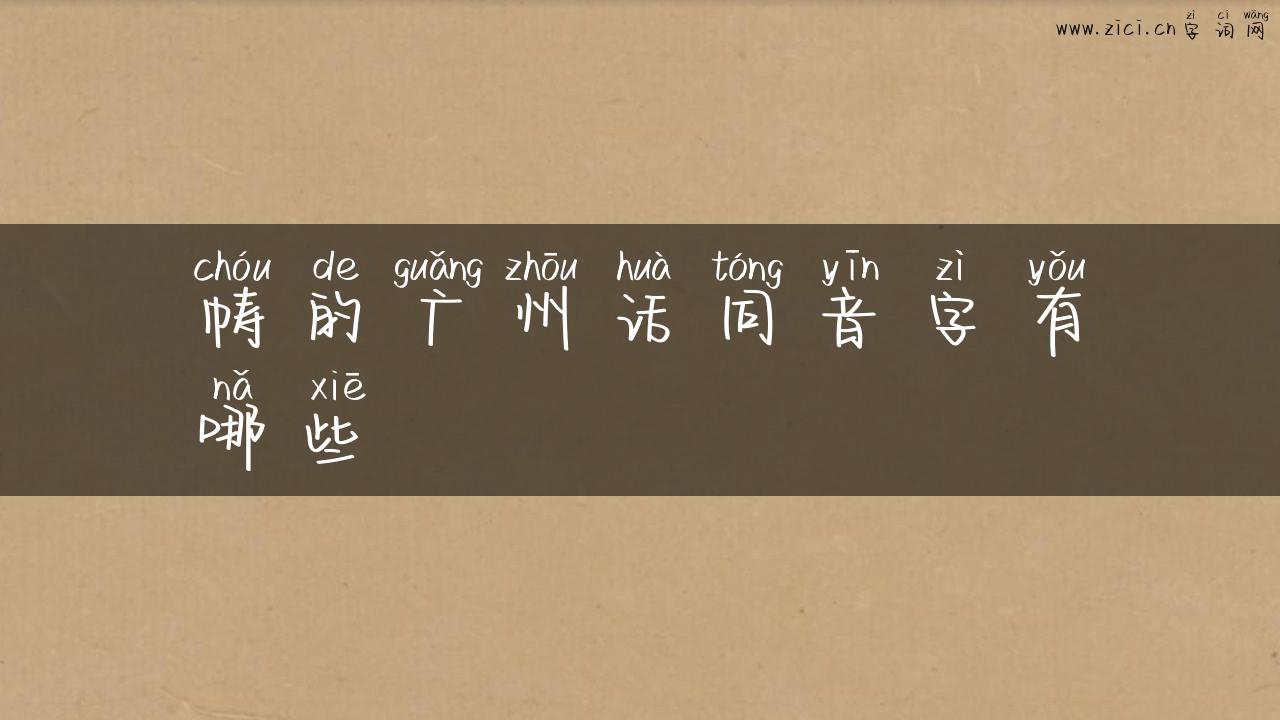 zì cí wǎng
www.zici.cn 字词网
chóu de guǎng zhōu huà tóng yīn zì yǒu
帱的广州话同音字有
nǎ xiē
哪些